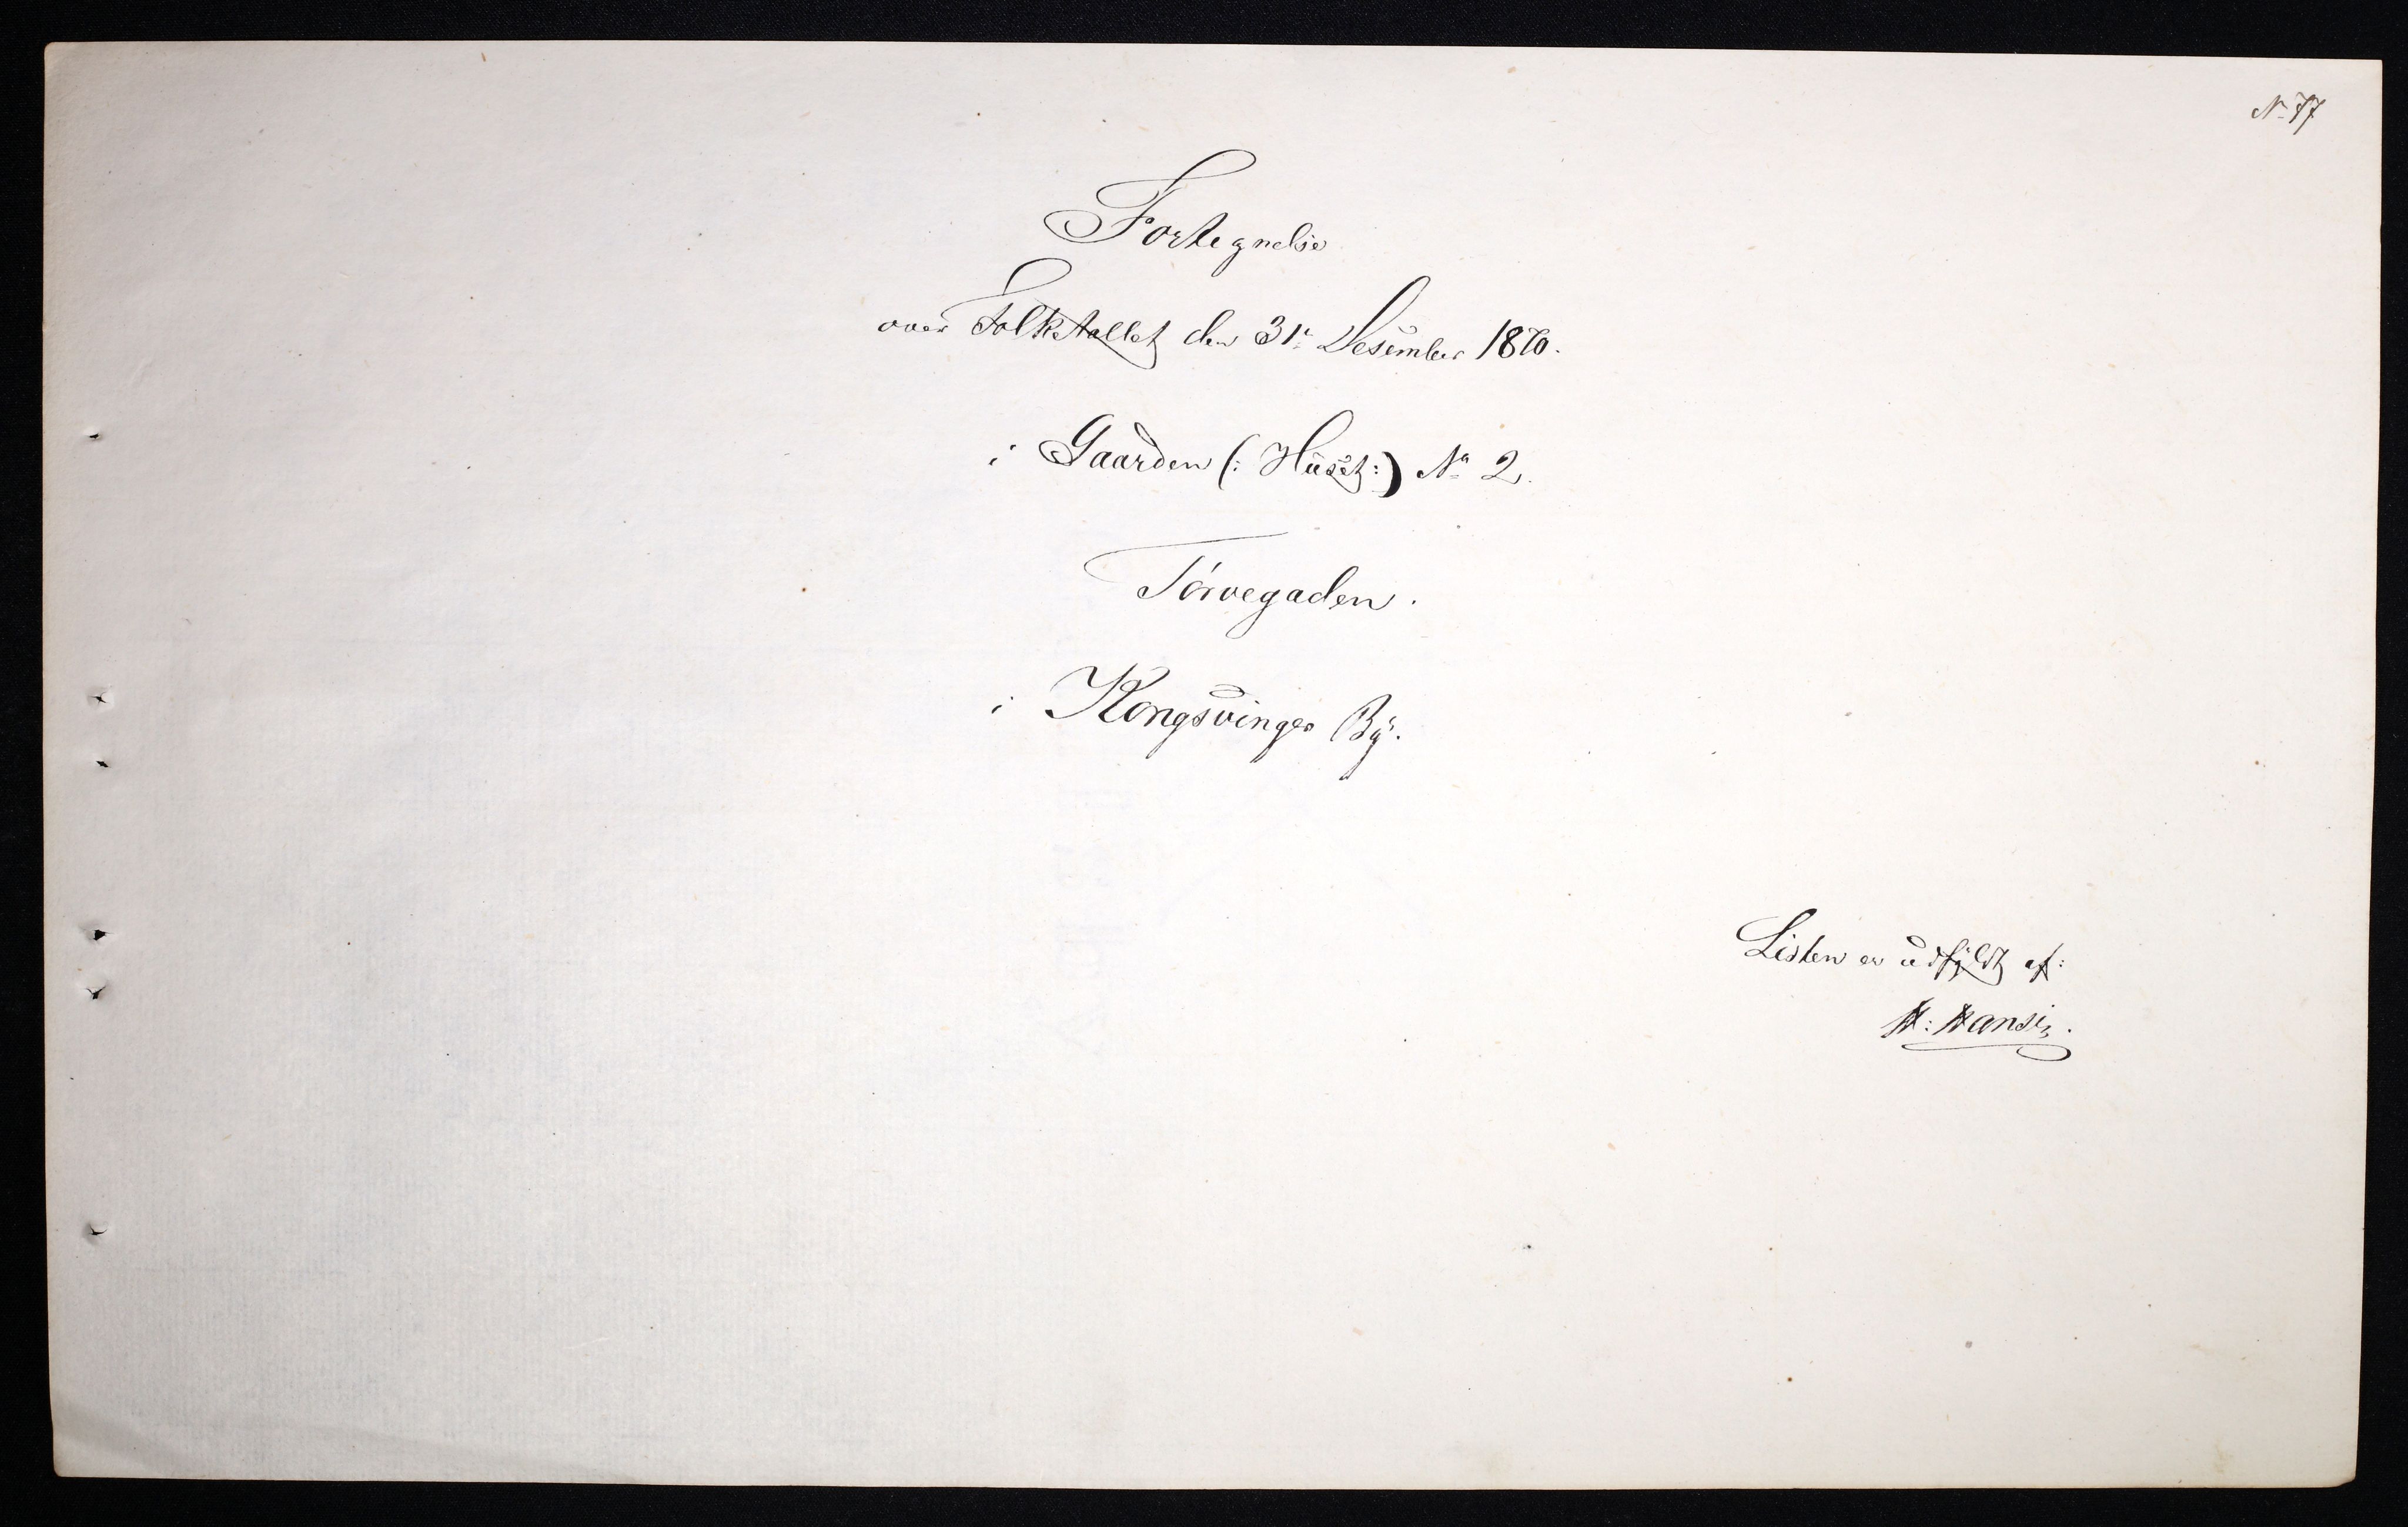 No 77
Fortegnelse
over Folketallet den 31te Desember 1870.
i Gaarden (: Huset :) No 2.
Torvegaden.
i Kongsvinger By.
Listen er udfyldt af:
H: Hansen.